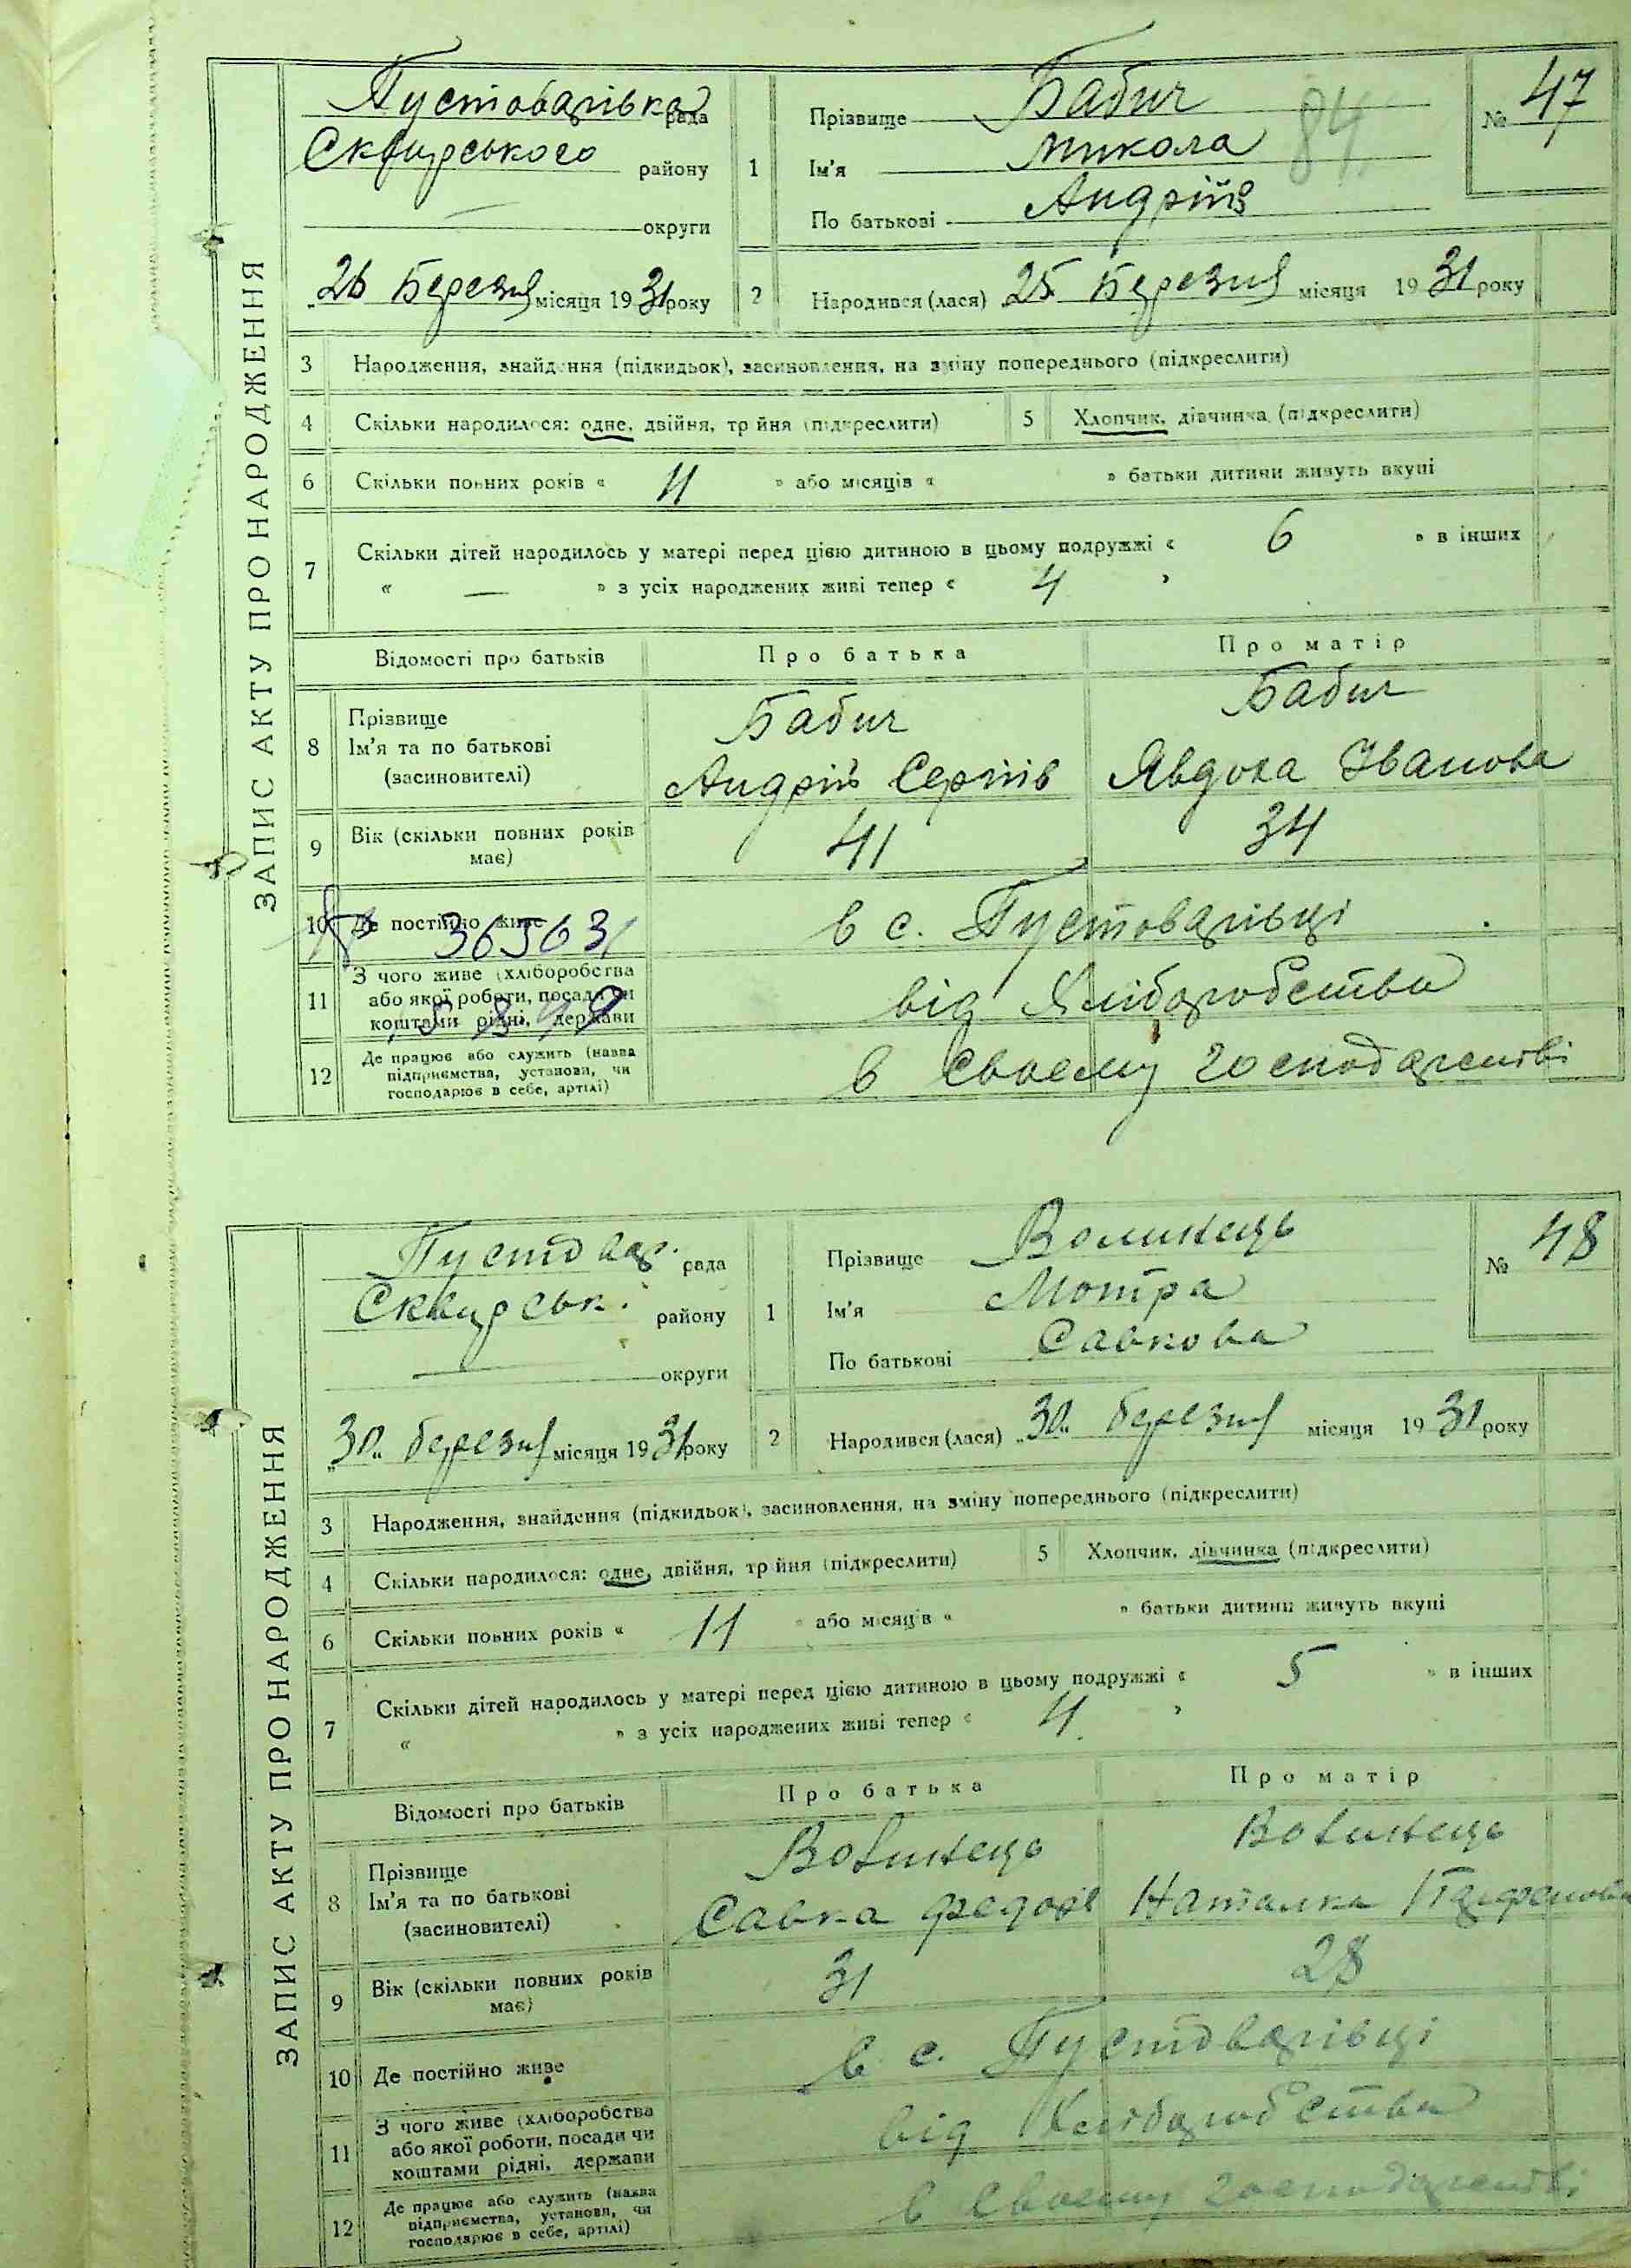 ЗАПИС АКТУ ПРО НАРОДЖЕННЯ
Пустоварівка рада
Сквирського району
округи
26 Березня місяця 1931 року
1 Прізвище Бабич
Ім'я Микола
По батькові Андріїв
84
№ 47
2 Народився (лася) 25 Березня місяця 1931 року
3 Народження, знайдення (підкидьок), засиновлення, на зміну попереднього (підкреслити)
4 Скільки народилося: одне, двійня, трійня (підкреслити) 5 Хлопчик, дівчинка (підкреслити)
6 Скільки повних років « 11 » або місяців « » батьки дитини живуть вкупі
7 Скільки дітей народилось у матері перед цією дитиною в цьому подружжі « 6 » в інших
« — » з усіх народжених живі тепер « 4 »
Відомості про батьків Про батька Про матір
8 Прізвище Бабич Бабич
Ім'я та по батькові Андрій Сергіїв Явдоха Іванова
(засиновителі)
9 Вік (скільки повних років має) 41 34
10 Де постійно живе в с. Пустоварівці
365631
11 З чого живе (хліборобства
або якої роботи, посади чи від Хліборобства
коштами рідні, держави
12 Де працює або служить (назва
підприємства, установи, чи в своєму господарстві
господарює в себе, артілі)
ЗАПИС АКТУ ПРО НАРОДЖЕННЯ
Пустовар. рада
Сквирськ. району
округи
„30„ березня місяця 1931 року
1 Прізвище Волинець
Ім'я Мотря
По батькові Савкова
№ 48
2 Народився (лася) „30„ березня місяця 1931 року
3 Народження, знайдення (підкидьок), засиновлення, на зміну попереднього (підкреслити)
4 Скільки народилося: одне, двійня, трійня (підкреслити) 5 Хлопчик, дівчинка (підкреслити)
6 Скільки повних років « 11 » або місяців « » батьки дитини живуть вкупі
7 Скільки дітей народилось у матері перед цією дитиною в цьому подружжі « 5 » в інших
« » з усіх народжених живі тепер « 4 »
Відомості про батьків Про батька Про матір
8 Прізвище Волинець Волинець
Ім'я та по батькові Савка Федорів Наталка Парфенова
(засиновителі)
9 Вік (скільки повних років має) 31 28
10 Де постійно живе в с. Пустоварівці
11 З чого живе (хліборобства
або якої роботи, посади чи від Хліборобства
коштами рідні, держави
12 Де працює або служить (назва
підприємства, установи, чи в своєму господарстві
господарює в себе, артілі)